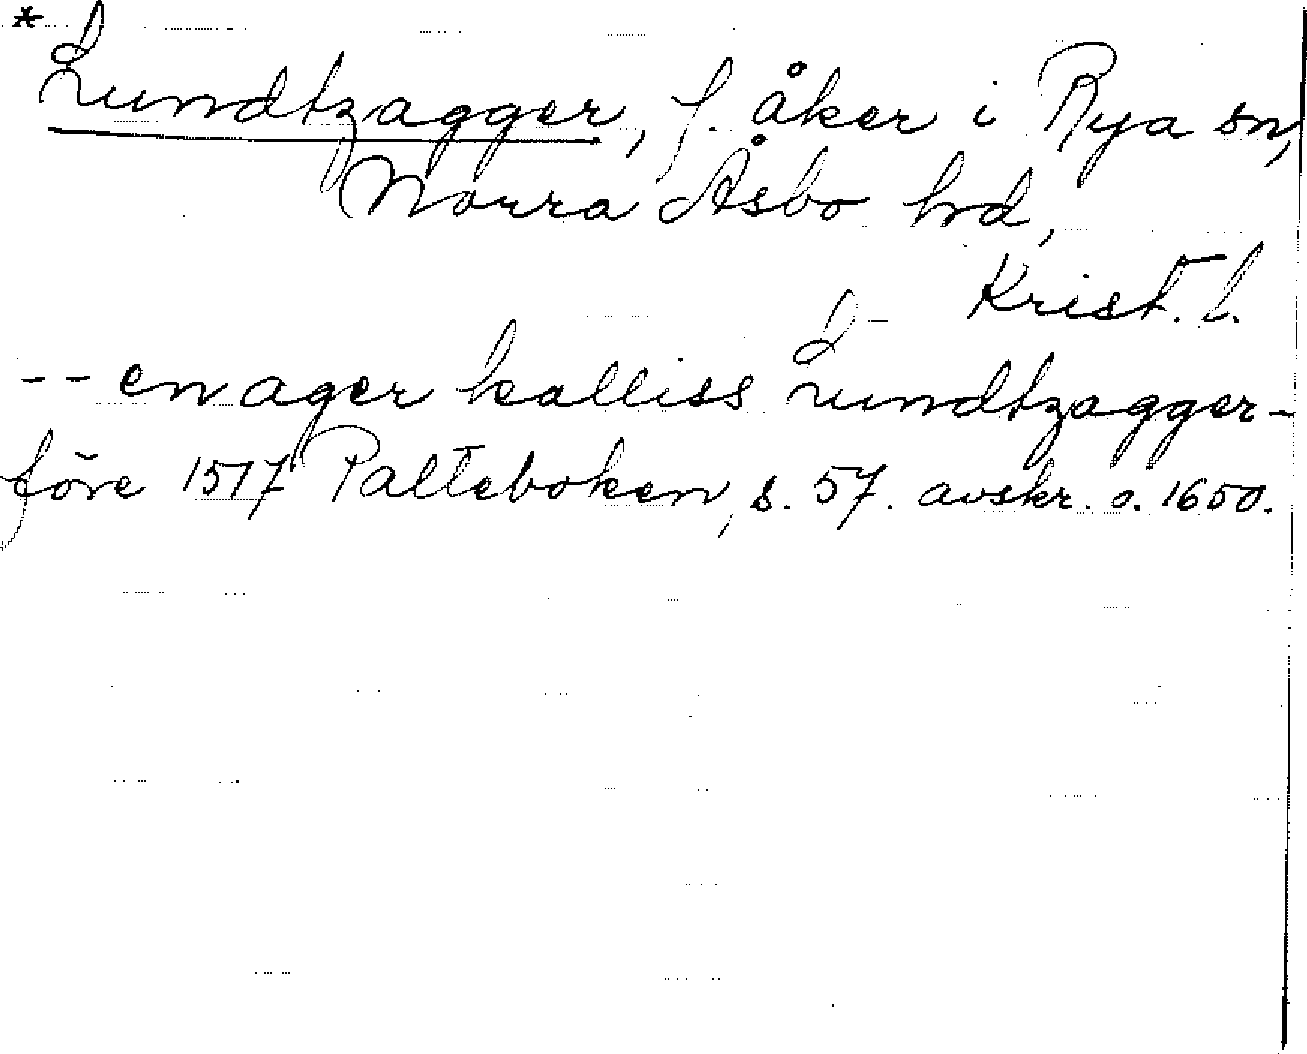 * Lundtzagger, f. åker i Rya sn,
Norra Åsbo hd,
Krist. l.
-- en ager kalliss Lundtzagger -
före 1517 Palteboken, s. 57. avskr. o. 1650.